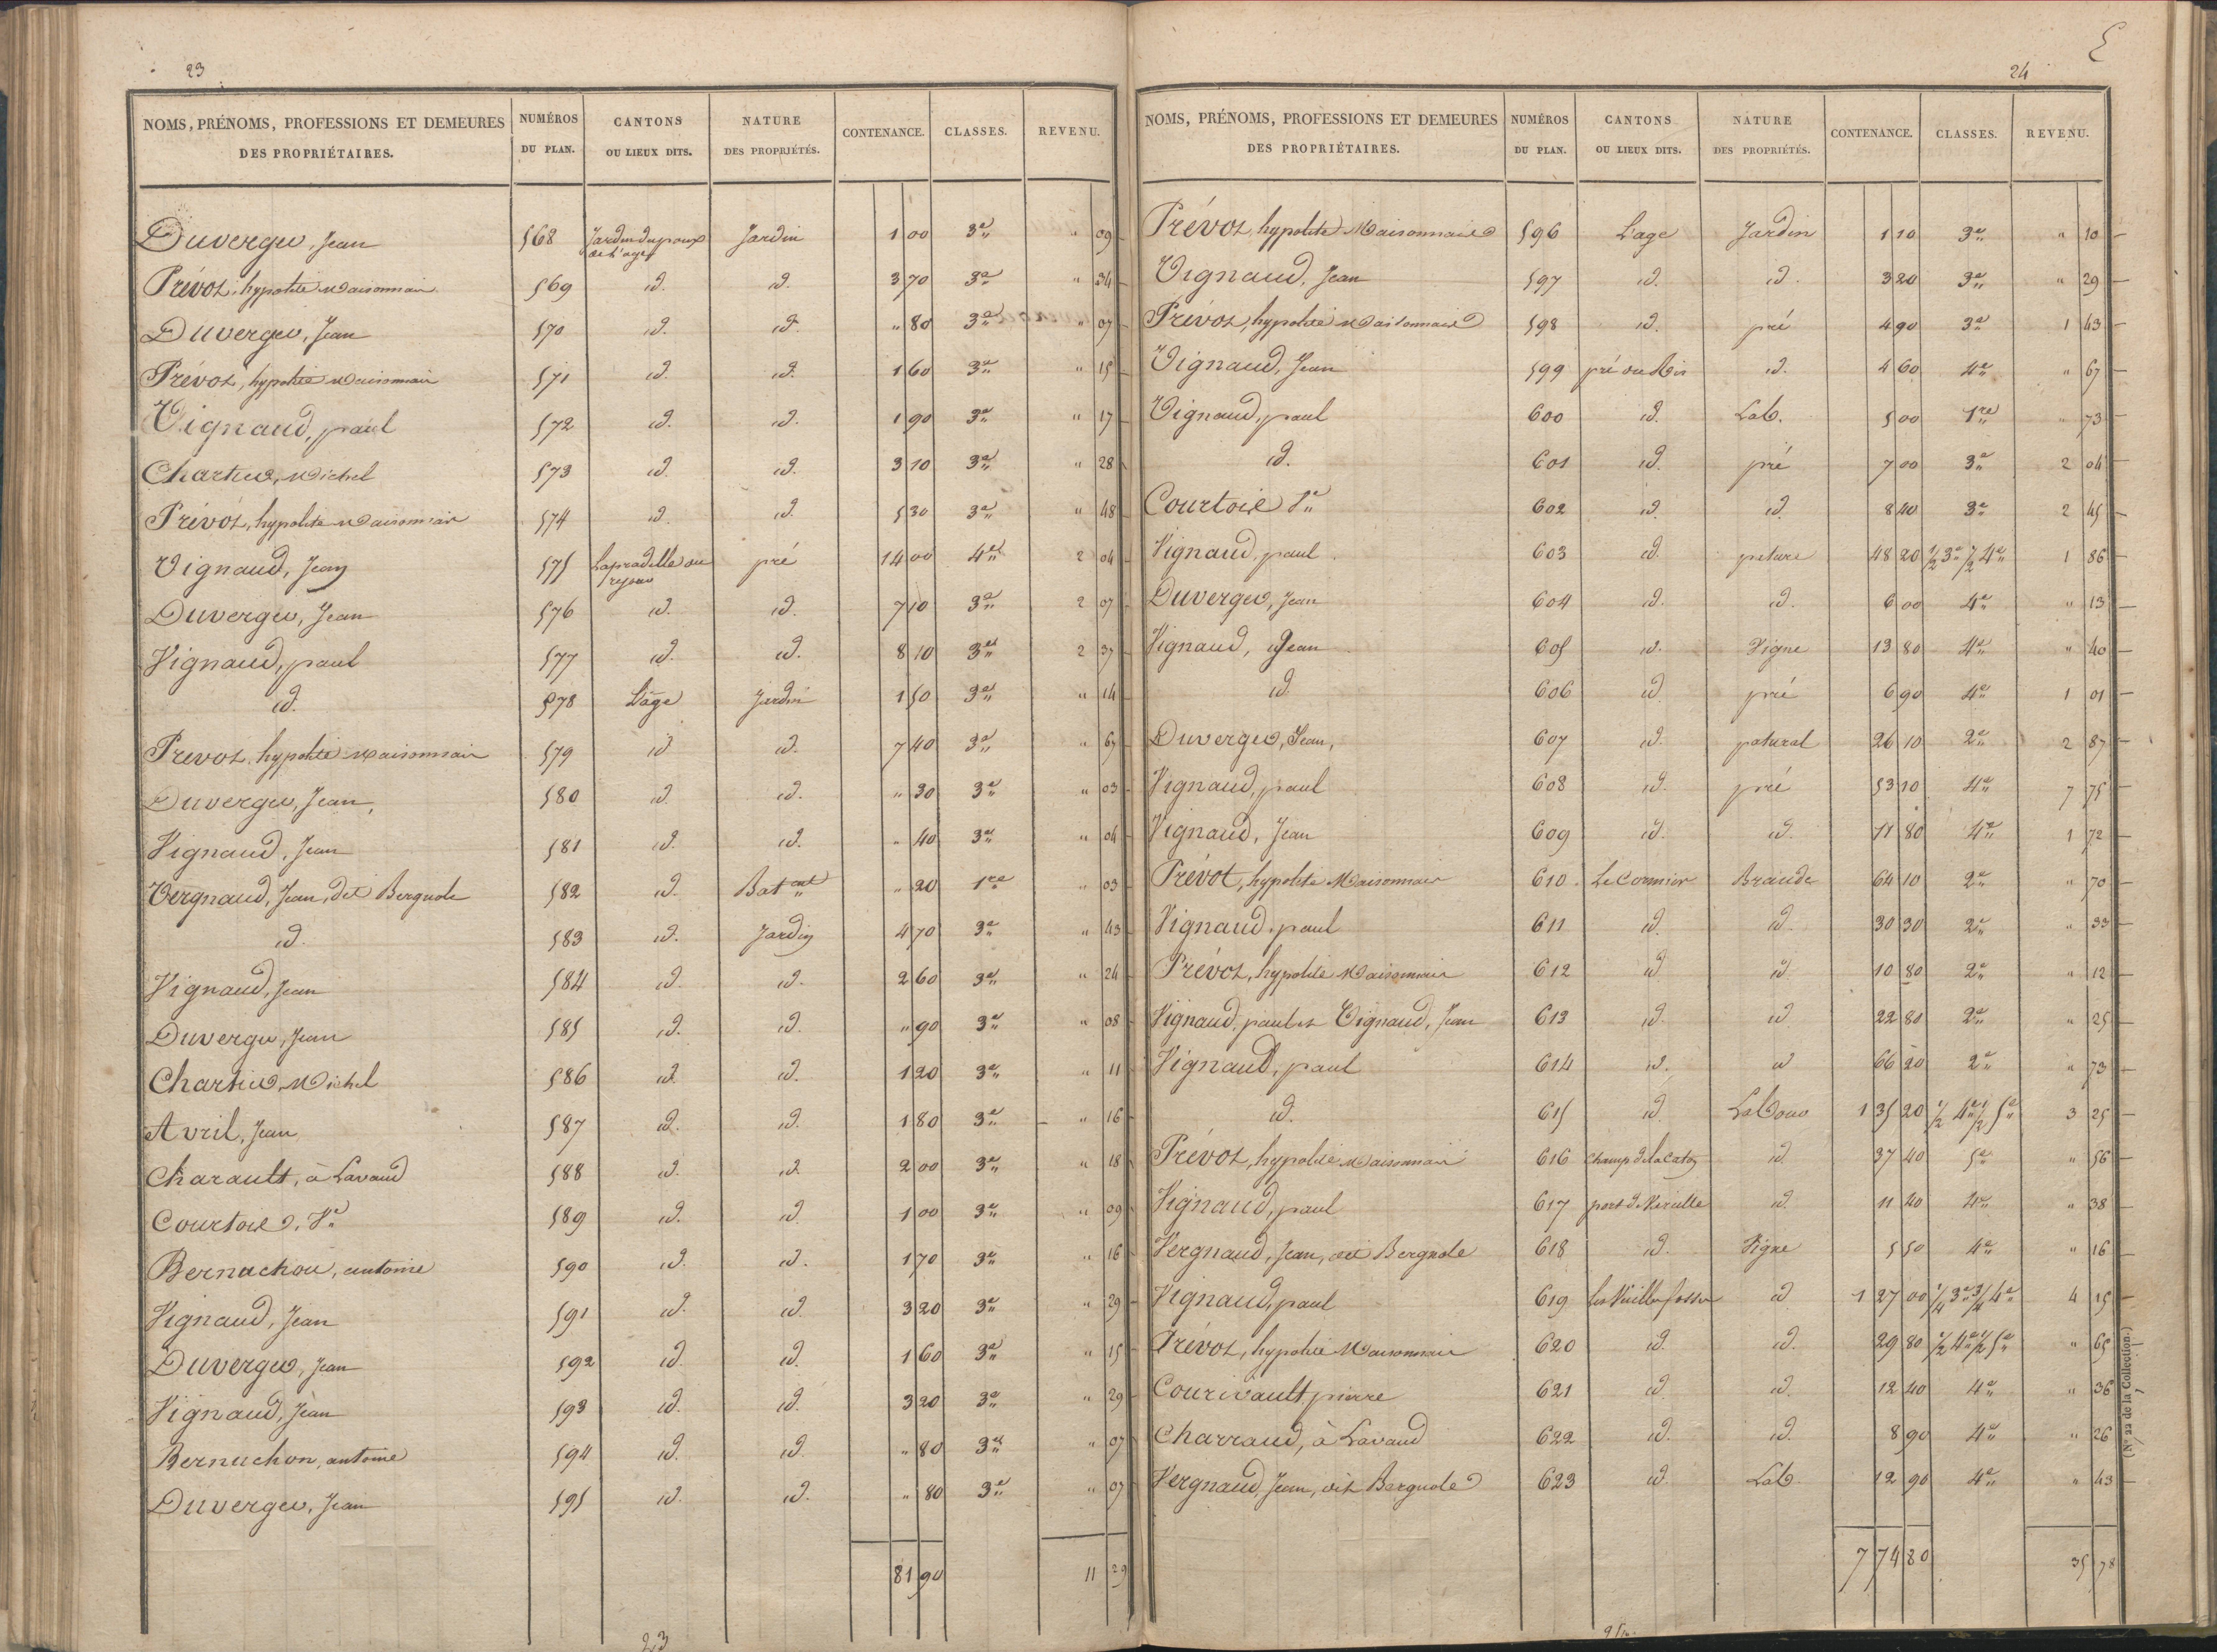 23
NOMS, PRÉNOMS, PROFESSIONS ET DEMEURES DES PROPRIÉTAIRES. NUMÉROS DU PLAN. CANTONS OU LIEUX DITS. NATURE DES PROPRIÉTÉS. CONTENANCE. CLASSES. REVENU.
Duverger, Jean 568 Jardin du proux de L'age Jardin 1 00 3e " 09
Prévot, hypolite Maisonnais 569 id. id. 3 70 3e " 34
Duverger, Jean 570 id. id. " 80 3e " 07
Prévot, hypolite Maisonnais 571 id. id. 1 60 3e " 15
Vignaud, paul 572 id. id. 1 90 3e " 17
Chartier, Michel 573 id. id. 3 10 3e " 28
Prévot, hypolite Maisonnais 574 id. id. 5 30 3e " 48
Vignaud, Jean 575 Lapradelle ou pré 14 00 4e 2 04
Duverger, Jean 576 id. id. 7 10 3e 2 07
Vignaud, paul 577 id. id. 8 10 3e 2 37
id. 578 L'age Jardin 1 50 3e " 14
Prevot, hypolite Maisonnais 579 id id. 7 40 3e " 67
Duverger, Jean, 580 id. id. " 30 3e " 03
Vignaud, Jean 581 id. id. " 40 3e " 04
Vergnaud, Jean, dit Bergnole 582 id. Bat ent " 20 1re " 03
id. 583 id. Jardin 4 70 3e " 43
Vignaud, Jean 584 id. id. 2 60 3e " 24
Duverger, Jean 585 id. id. " 90 3e " 08
Chartier Michel 586 id. id. 1 20 3e " 11
Avril, Jean 587 id. id. 1 80 3e " 16
Charault, à Lavaud 588 id. id. 2 00 3e " 18
Courtois, Ve 589 id. id. 1 00 3e " 09
Bernuchon, antoine 590 id. id. 1 70 3e " 16
Vignaud, Jean 591 id. id. 3 20 3e " 29
Duverger, Jean 592 id. id. 1 60 3e " 15
Vignaud, Jean 593 id. id. 3 20 3e " 29
Bernuchon, antoine 594 id. id. " 80 3e " 07
Duverger, Jean 595 id. id. " 80 3e " 07
81 90 11 29
23
24
NOMS, PRÉNOMS, PROFESSIONS ET DEMEURES DES PROPRIÉTAIRES. NUMÉROS DU PLAN. CANTONS OU LIEUX DITS. NATURE DES PROPRIÉTÉS. CONTENANCE. CLASSES. REVENU.
Prévot, hypolite Maisonnais 596 L'age Jardin 1 10 3e " 10
Vignaud, Jean 597 id. id. 3 20 3e " 29
Prévot, hypolite Maisonnais 598 id. pré 4 90 3e 1 43
Vignaud, Jean 599 pré du Ris id. 4 60 4e " 67
Vignaud, paul 600 id. Lab. 5 00 1re " 73
id. 601 id. pré 7 00 3e 2 04
Courtois Ve 602 id. id. 8 40 3e 2 45
Vignaud, paul 603 id. pature 48 20 1/2 3e 1/2 4e 1 86
Duverger, Jean 604 id. id. 6 00 4e " 13
Vignaud, Jean 605 id. Vigne 13 80 4e " 40
id. 606 id. pré 6 90 4e 1 01
Duverger, Jean, 607 id. patural 26 10 2e 2 87
Vignaud, paul 608 id. pré 53 10 4e 7 75
Vignaud, Jean 609 id. id. 11 80 4e 1 72
Prévot, hypolite Maisonnais 610 Le Cormier Brande 64 10 2e " 70
Vignaud, paul 611 id. id. 30 30 2e " 33
Prévot, hypolite Maisonnais 612 id id. 10 80 2e " 12
Vignaud, paul et Vignaud, Jean 613 id. id 22 80 2e " 25
Vignaud, paul 614 id. id 66 20 2e " 73
id. 615 id. Labour 1 35 20 1/2 4e 1/2 5e 3 25
Prévot, hypolite Maisonnais 616 Champ de la Caton id. 37 40 5e " 56
Vignaud, paul 617 id. 11 40 4e " 38
Vergnaud, Jean, dit Bergnole 618 id. Vigne 5 50 4e " 16
Vignaud, paul 619 Les Vieilles fosses id 1 27 00 1/4 3e 3/4 4e 4 15
Prévot, hypolite Maisonnais 620 id. id. 29 80 1/2 4e 1/2 5e " 65
Courivault, pierre 621 id. id. 12 40 4e " 36
Charraud, à Lavaud 622 id. id. 8 90 4e " 26
Vergnaud Jean, dit Bergnole 623 id. Lab. 12 90 4e " 43
7 74 80 35 78
(N° 22 de la Collection.)